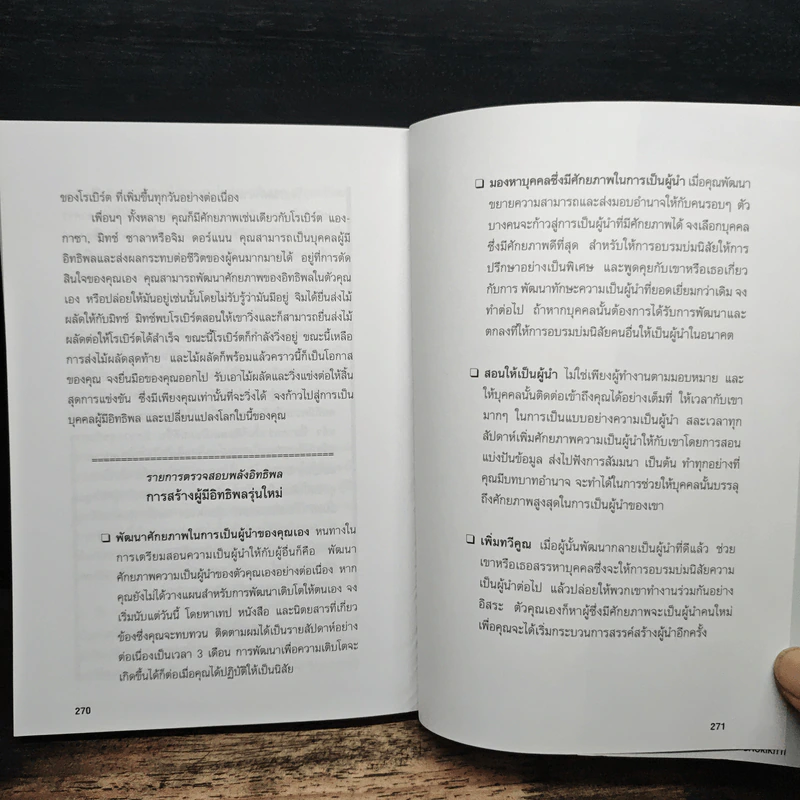 ของโรเบิร์ต ที่เพิ่มขึ้นทุกวันอย่างต่อเนื่อง
เพื่อนๆ ทั้งหลาย คุณก็มีศักยภาพเช่นเดียวกับโรเบิร์ต แอง-
กาซา, มิทช์ ซาลาหรือจิม ดอร์แนน คุณสามารถเป็นบุคคลผู้มี
อิทธิพลและส่งผลกระทบต่อชีวิตของผู้คนมากมายได้ อยู่ที่การตัด
สินใจของคุณเอง คุณสามารถพัฒนาศักยภาพของอิทธิพลในตัวคุณ
เอง หรือปล่อยให้มันอยู่เช่นนั้นโดยไม่รับรู้ว่ามันมีอยู่ จิมได้ยื่นส่งไม้
ผลัดให้กับมิทช์ มิทช์พบโรเบิร์ตสอนให้เขาวิ่งและก็สามารถยื่นส่งไม้
ผลัดต่อให้โรเบิร์ตได้สำเร็จ ขณะนี้โรเบิร์ตก็กำลังวิ่งอยู่ ขณะนี้เหลือ
การส่งไม้ผลัดสุดท้าย และไม้ผลัดก็พร้อมแล้วคราวนี้ก็เป็นโอกาส
ของคุณ จงยื่นมือของคุณออกไป รับเอาไม้ผลัดและวิ่งแข่งต่อให้สิ้น
สุดการแข่งขัน ซึ่งมีเพียงคุณเท่านั้นที่จะวิ่งได้ จงก้าวไปสู่การเป็น
บุคคลผู้มีอิทธิพล และเปลี่ยนแปลงโลกใบนี้ของคุณ
รายการตรวจสอบพลังอิทธิพล
การสร้างผู้มีอิทธิพลรุ่นใหม่
❑ พัฒนาศักยภาพในการเป็นผู้นำของคุณเอง หนทางใน
การเตรียมสอนความเป็นผู้นำให้กับผู้อื่นก็คือ พัฒนา
ศักยภาพความเป็นผู้นำของตัวคุณเองอย่างต่อเนื่อง หาก
คุณยังไม่ได้วางแผนสำหรับการพัฒนาเติบโตให้ตนเอง จง
เริ่มนับแต่วันนี้ โดยหาเทป หนังสือ และนิตยสารที่เกี่ยว
ข้องซึ่งคุณจะทบทวน ติดตามผมได้เป็นรายสัปดาห์อย่าง
ต่อเนื่องเป็นเวลา 3 เดือน การพัฒนาเพื่อความเติบโตจะ
เกิดขึ้นได้ก็ต่อเมื่อคุณได้ปฏิบัติให้เป็นนิสัย
270
❑ มองหาบุคคลซึ่งมีศักยภาพในการเป็นผู้นำ เมื่อคุณพัฒนา
ขยายความสามารถและส่งมอบอำนาจให้กับคนรอบๆ ตัว
บางคนจะก้าวสู่การเป็นผู้นำที่มีศักยภาพได้ จงเลือกบุคคล
ซึ่งมีศักยภาพดีที่สุด สำหรับให้การอบรมบ่มนิสัยให้การ
ปรึกษาอย่างเป็นพิเศษ และพูดคุยกับเขาหรือเธอเกี่ยว
กับการ พัฒนาทักษะความเป็นผู้นำที่ยอดเยี่ยมกว่าเดิม จง
ทำต่อไป ถ้าหากบุคคลนั้นต้องการได้รับการพัฒนาและ
ตกลงที่ให้การอบรมบ่มนิสัยคนอื่นให้เป็นผู้นำในอนาคต
❑ สอนให้เป็นผู้นำ ไม่ใช่เพียงผู้ทำงานตามมอบหมาย และ
ให้บุคคลนั้นติดต่อเข้าถึงคุณได้อย่างเต็มที่ ให้เวลากับเขา
มากๆ ในการเป็นแบบอย่างความเป็นผู้นำ สละเวลาทุก
สัปดาห์เพิ่มศักยภาพความเป็นผู้นำให้กับเขาโดยการสอน
แบ่งปันข้อมูล ส่งไปฟังการสัมมนา เป็นต้น ทำทุกอย่างที่
คุณมีบทบาทอำนาจ จะทำได้ในการช่วยให้บุคคลนั้นบรรลุ
ถึงศักยภาพสูงสุดในการเป็นผู้นำของเขา
❑ เพิ่มทวีคูณ เมื่อผู้นั้นพัฒนากลายเป็นผู้นำที่ดีแล้ว ช่วย
เขาหรือเธอสรรหาบุคคลซึ่งจะให้การอบรมบ่มนิสัยความ
เป็นผู้นำต่อไป แล้วปล่อยให้พวกเขาทำงานร่วมกันอย่าง
อิสระ ตัวคุณเองก็หาผู้ซึ่งมีศักยภาพจะเป็นผู้นำคนใหม่
เพื่อคุณจะได้เริ่มกระบวนการสรรค์สร้างผู้นำอีกครั้ง
271